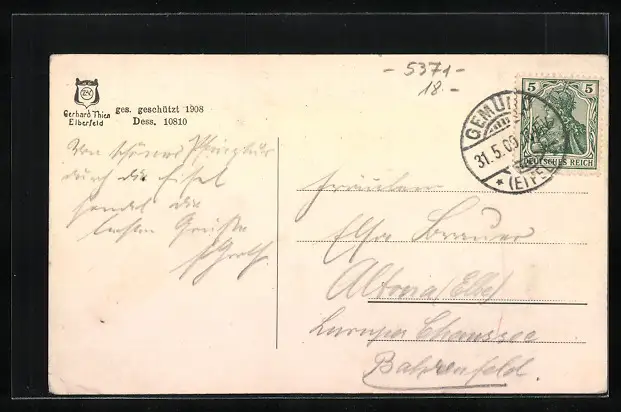 - 5371 -
18. -
Gerhard Thien
Elberfeld
ges. geschützt 1908
Dess. 10810
5 5
DEUTSCHES REICH
GEMÜND
31.5.09
* (EIFEL)
Von schöner Pfingsttour
durch die Eifel
sendet die
besten Grüße
Fräulein
Elsa Brauer
Altona (Elbe)
Chaussee
Bahrenfeld.